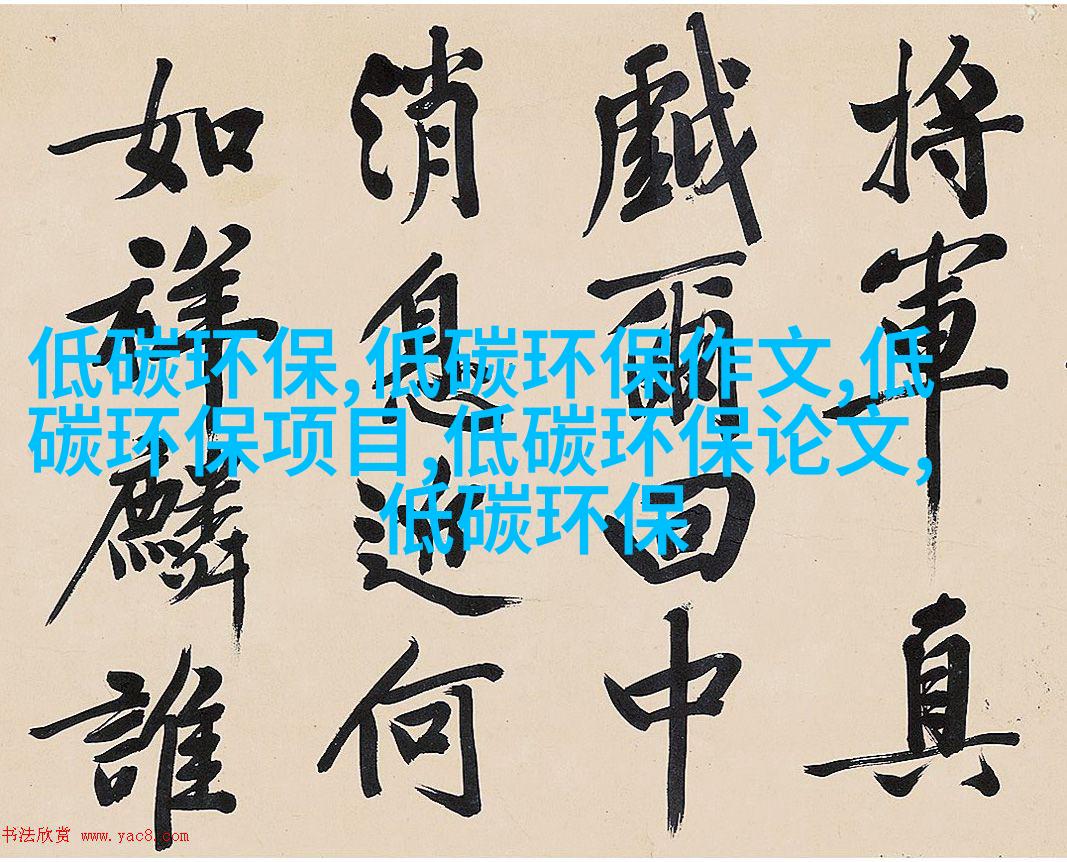 將軍真
戯爾回中
消息何
如祥麟誰
低碳环保,低碳环保作文,低
碳环保项目,低碳环保论文,
低碳环保
书法欣赏 www.yac8.com